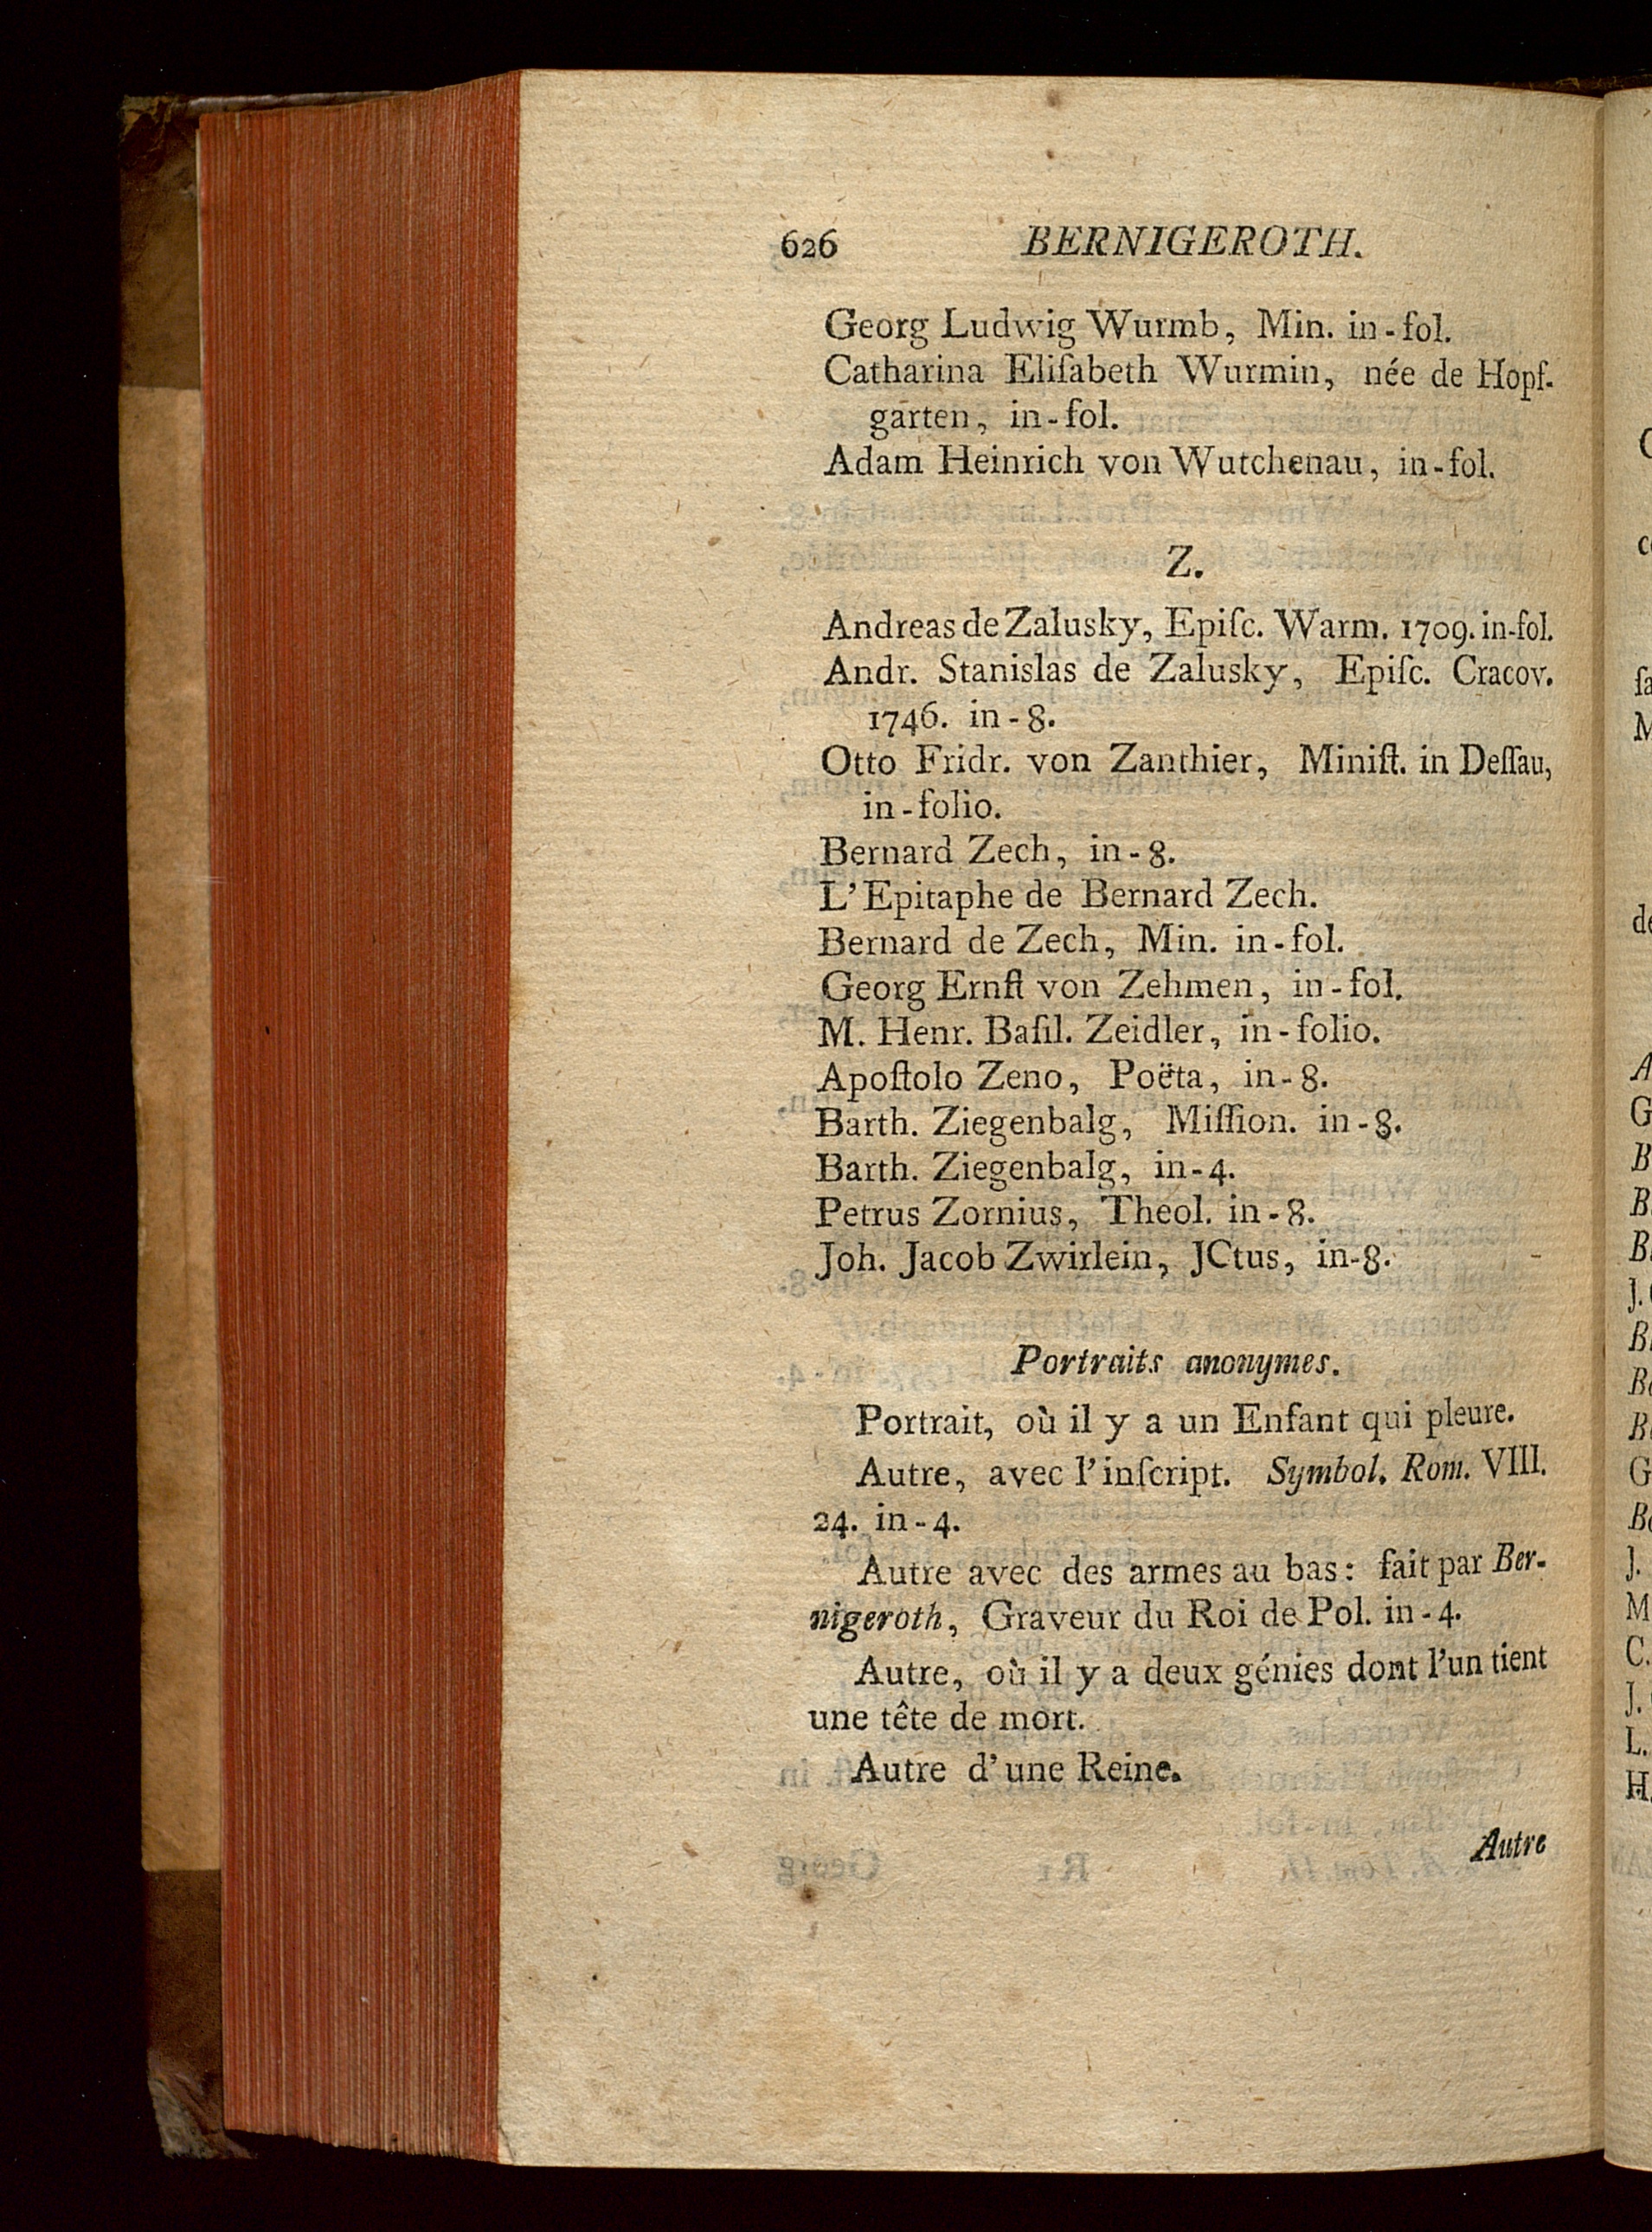 626 BERNIGEROTH.
Georg Ludwig Wurmb, Min. in-fol.
Catharina Eliſabeth Wurmin, née de Hopf-
garten, in-fol.
Adam Heinrich von Wutchenau, in-fol.
Z.
Andreas de Zalusky, Epiſc. Warm. 1709. in-fol.
Andr. Stanislas de Zalusky, Epiſc. Cracov.
1746. in-8.
Otto Fridr. von Zanthier, Miniſt. in Deſſau,
in-folio.
Bernard Zech, in-8.
L'Epitaphe de Bernard Zech.
Bernard de Zech, Min. in-fol.
Georg Ernſt von Zehmen, in-fol.
M. Henr. Baſil. Zeidler, in-folio.
Apoſtolo Zeno, Poëta, in-8.
Barth. Ziegenbalg, Miſſion. in-8.
Barth. Ziegenbalg, in-4.
Petrus Zornius, Theol. in-8.
Joh. Jacob Zwirlein, JCtus, in-8.
Portraits anonymes.
Portrait, où il y a un Enfant qui pleure.
Autre, avec l'inſcript. Symbol. Rom. VIII.
24. in-4.
Autre avec des armes au bas: fait par Ber-
nigeroth, Graveur du Roi de Pol. in-4.
Autre, où il y a deux génies dont l'un tient
une tête de mort.
Autre d'une Reine.
Autre